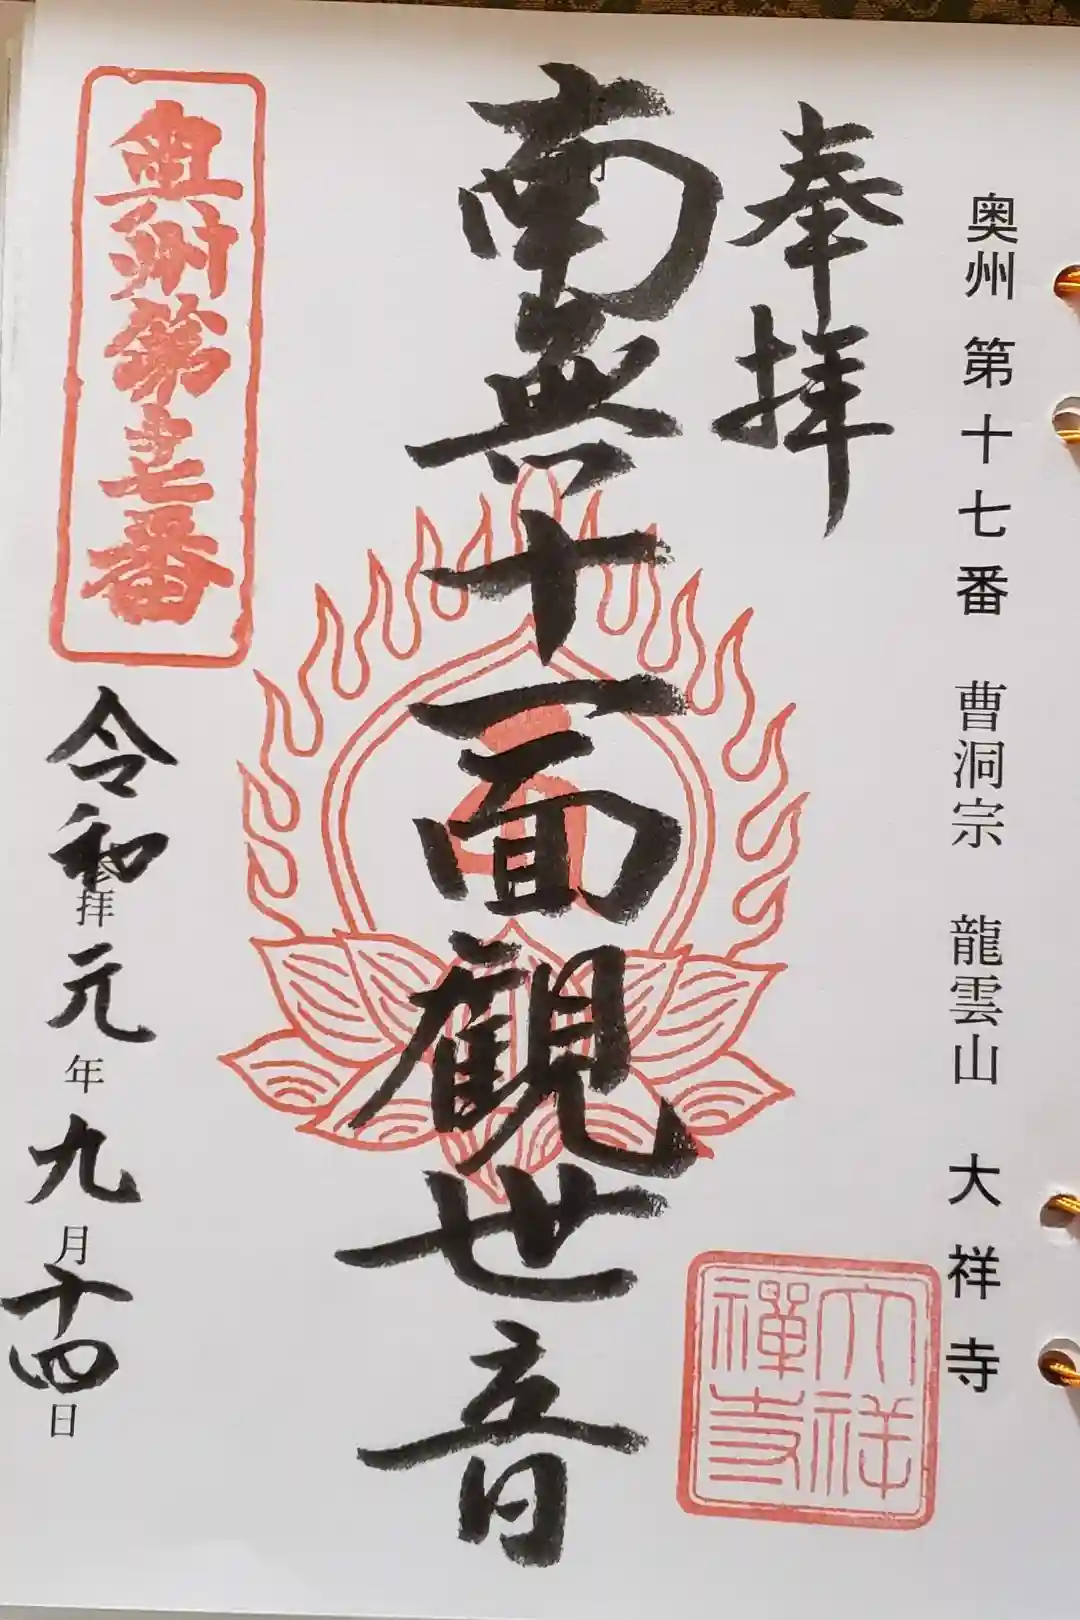 奥州第十七番 曹洞宗 龍雲山 大祥寺
奉拝
南無十一面観世音
奥州第十七番
令和元年九月十四日
参拝
大祥禅寺